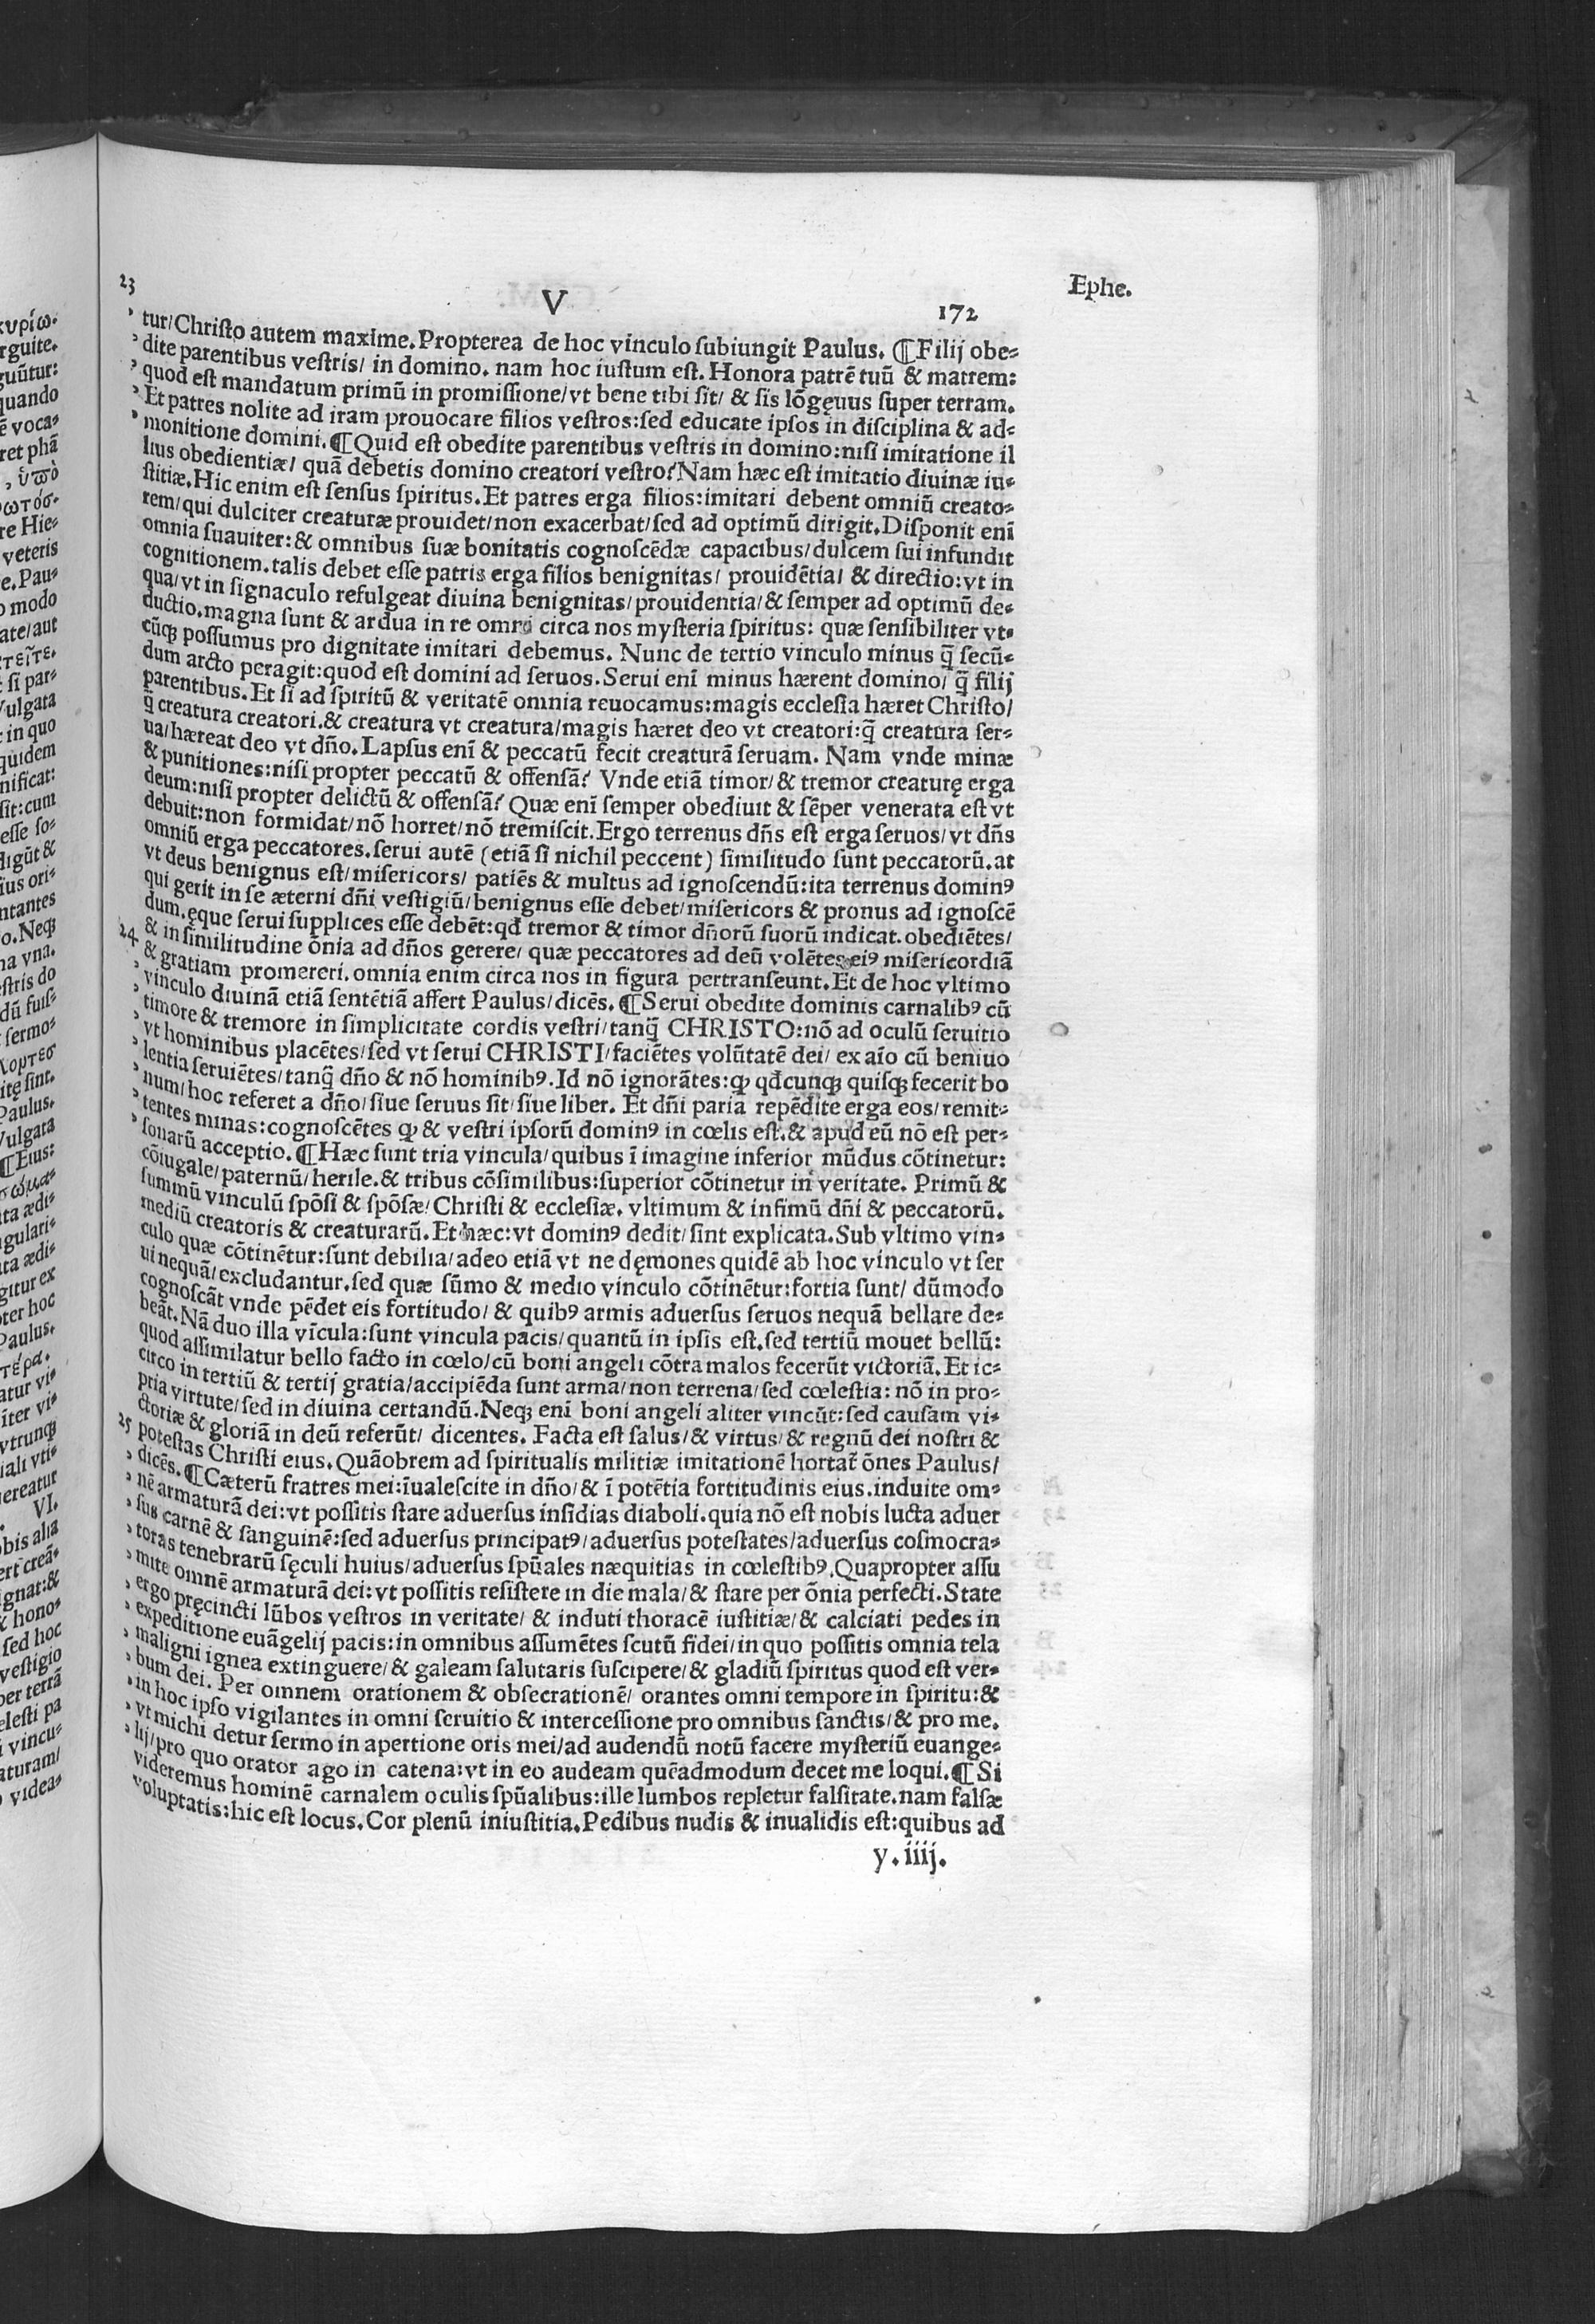 23
V
172
Ephe.
tur/Chriſto autem maxime.Propterea de hoc vinculo ſubiungit Paulus. ¶Filij obe⸗
dite parentibus veſtris/ in domino. nam hoc iuſtum eſt. Honora patrē tuū & matrem:
quod eſt mandatum primū in promiſſione/vt bene tibi ſit/ & ſis lōgęuus ſuper terram.
Et patres nolite ad iram prouocare filios veſtros:ſed educate ipſos in diſciplina & ad⸗
monitione domini.¶Quid eſt obedite parentibus veſtris in domino:niſi imitatione il
lius obedientiæ/ quā debetis domino creatori veſtro? Nam hæc eſt imitatio diuinæ iu⸗
ſtitiæ.Hic enim eſt ſenſus ſpiritus.Et patres erga filios:imitari debent omniū creato⸗
rem/qui dulciter creaturæ prouidet/non exacerbat/ſed ad optimū dirigit.Diſponit enī
omnia ſuauiter:& omnibus ſuæ bonitatis cognoſcēdæ capacibus/dulcem ſui infundit
cognitionem.talis debet eſſe patris erga filios benignitas/ prouidētia/ & directio:vt in
qua/vt in ſignaculo refulgeat diuina benignitas/prouidentia/& ſemper ad optimū de⸗
ductio.magna ſunt & ardua in re omni circa nos myſteria ſpiritus: quæ ſenſibiliter vt⸗
cūqꝫ poſſumus pro dignitate imitari debemus. Nunc de tertio vinculo minus q̄ ſecū⸗
dum arcto peragit:quod eſt domini ad ſeruos.Serui enī minus hærent domino/ q̄ filij
parentibus.Et ſi ad ſpiritū & veritatē omnia reuocamus:magis eccleſia hæret Chriſto/
q̄ creatura creatori.& creatura vt creatura/magis hæret deo vt creatori:q̄ creatura ſer⸗
ua/hæreat deo vt dño.Lapſus enī & peccatū fecit creaturā ſeruam. Nam vnde minæ
& punitiones:niſi propter peccatū & offenſā? Vnde etiā timor/& tremor creaturę erga
deum:niſi propter delictū & offenſā? Quæ enī ſemper obediuit & ſēper venerata eſt vt
debuit:non formidat/nō horret/nō tremiſcit.Ergo terrenus dñs eſt erga ſeruos/vt dñs
omniū erga peccatores.ſerui autē (etiā ſi nichil peccent) ſimilitudo ſunt peccatorū.at
vt deus benignus eſt/miſericors/ patiēs & multus ad ignoſcendū:ita terrenus dominꝰ
qui gerit in ſe æterni dñi veſtigiū/benignus eſſe debet/miſericors & pronus ad ignoſcē
dum.ęque ſerui ſupplices eſſe debēt:qđ tremor & timor dñorū ſuorū indicat.obediētes/
24 & in ſimilitudine ōnia ad dños gerere/ quæ peccatores ad deū volētes eiꝰ miſericordiā
& gratiam promereri.omnia enim circa nos in figura pertranſeunt.Et de hoc vltimo
vinculo diuinā etiā ſentētiā affert Paulus/dicēs.¶Serui obedite dominis carnalibꝰ cū
timore & tremore in ſimplicitate cordis veſtri/tanq̄ CHRISTO:nō ad oculū ſeruitio
vt hominibus placētes/ſed vt ſerui CHRISTI/faciētes volūtatē dei/ ex aīo cū beniuo
lentia ſeruiētes/tanq̄ dño & nō hominibꝰ.Id nō ignorātes:ꝙ qđcunqꝫ quiſqꝫ fecerit bo
num/hoc referet a dño/ſiue ſeruus ſit/ſiue liber. Et dñi paria repēdite erga eos/remit⸗
tentes minas:cognoſcētes ꝙ & veſtri ipſorū dominꝰ in cœlis eſt.& apud eū nō eſt per⸗
ſonarū acceptio.¶Hæc ſunt tria vincula/quibus ī imagine inferior mūdus cōtinetur:
cōiugale/paternū/herile.& tribus cōſimilibus:ſuperior cōtinetur in veritate. Primū &
ſummū vinculū ſpōſi & ſpōſæ/Chriſti & eccleſiæ. vltimum & infimū dñi & peccatorū.
mediū creatoris & creaturarū.Et hæc:vt dominꝰ dedit/ſint explicata.Sub vltimo vin⸗
culo quæ cōtinētur:ſunt debilia/adeo etiā vt ne dęmones quidē ab hoc vinculo vt ſer
ui nequā/excludantur.ſed quæ ſūmo & medio vinculo cōtinētur:fortia ſunt/ dūmodo
cognoſcāt vnde pēdet eis fortitudo/ & quibꝰ armis aduerſus ſeruos nequā bellare de⸗
beāt.Nā duo illa vīcula:ſunt vincula pacis/quantū in ipſis eſt.ſed tertiū mouet bellū:
quod aſſimilatur bello facto in cœlo/cū boni angeli cōtra malos fecerūt victoriā.Et ic⸗
circo in tertiū & tertij gratia/accipiēda ſunt arma/non terrena/ſed cœleſtia: nō in pro⸗
pria virtute/ſed in diuina certandū.Neqꝫ enī boni angeli aliter vincūt:ſed cauſam vi⸗
ctoriæ & gloriā in deū referūt/ dicentes. Facta eſt ſalus/& virtus/& regnū dei noſtri &
25 poteſtas Chriſti eius.Quāobrem ad ſpiritualis militiæ imitationē hortat᷑ ōnes Paulus/
dicēs.¶Cæterū fratres mei:īualeſcite in dño/& ī potētia fortitudinis eius.induite om⸗
nē armaturā dei:vt poſſitis ſtare aduerſus inſidias diaboli.quia nō eſt nobis lucta aduer
ſus carnē & ſanguinē:ſed aduerſus principatꝰ/aduerſus poteſtates/aduerſus coſmocra⸗
toras tenebrarū ſęculi huius/aduerſus ſpūales næquitias in cœleſtibꝰ.Quapropter aſſu
mite omnē armaturā dei:vt poſſitis reſiſtere in die mala/& ſtare per ōnia perfecti.State
ergo pręcincti lūbos veſtros in veritate/ & induti thoracē iuſtitiæ/& calciati pedes in
expeditione euāgelij pacis:in omnibus aſſumētes ſcutū fidei/in quo poſſitis omnia tela
maligni ignea extinguere/& galeam ſalutaris ſuſcipere/& gladiū ſpiritus quod eſt ver⸗
bum dei. Per omnem orationem & obſecrationē/ orantes omni tempore in ſpiritu:&
in hoc ipſo vigilantes in omni ſeruitio & interceſſione pro omnibus ſanctis/& pro me.
vt michi detur ſermo in apertione oris mei/ad audendū notū facere myſteriū euange⸗
lij/pro quo orator ago in catena:vt in eo audeam quēadmodum decet me loqui.¶Si
videremus hominē carnalem oculis ſpūalibus:ille lumbos repletur falſitate.nam falſæ
voluptatis:hic eſt locus.Cor plenū iniuſtitia.Pedibus nudis & inualidis eſt:quibus ad
y.iiij.